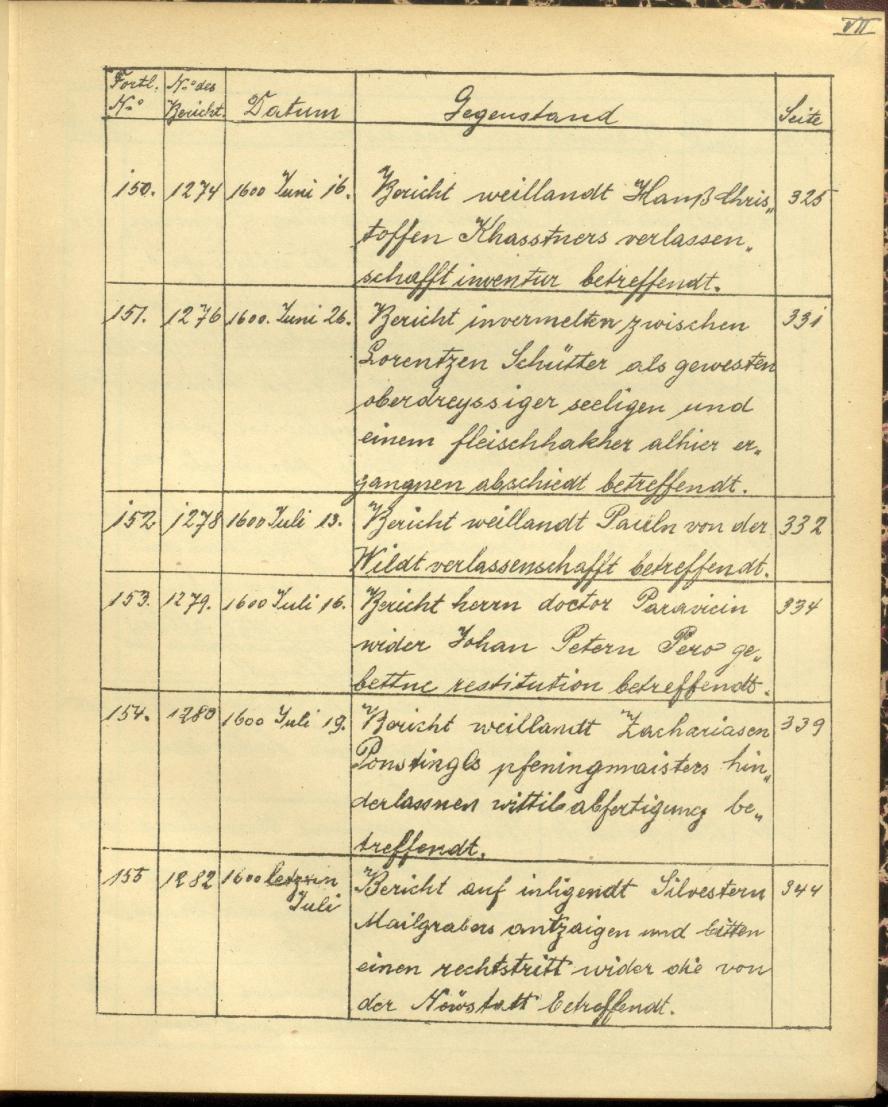 VII
Fortl. N.o des
N.o Bericht. Datum Gegenstand Seite
150. 1274 1600 Juni 16. Bericht weillandt Hanß Chris„ 325
toffen Khasstners verlassen„
schafft inventur betreffendt.
151. 1276 1600. Juni 26. Bericht invermelten zwischen 331
Lorentzen Schütter als gewesten
oberdreyssiger seeligen und
einem fleischhakher alhier er„
gangnen abschiedt betreffendt.
152 1278 1600 Juli 13. Bericht weillandt Paüln von der 332
Wildt verlassenschafft betreffendt.
153. 1279. 1600 Juli 16. Bericht herrn doctor Paravicin 334
wider Johan Petern Pero ge„
bettne restitution betreffendt.
154. 1280 1600 Juli 19. Bericht weillandt Zachariasen 339
Ponstingls pfeningmaisters hin„
derlassnen wittib abfertigung be„
treffendt.
155 1282 1600 Bericht auf inligendt Silvestern 344
Juli Mailgrabers antzaigen und bitten
einen rechtstritt wider die von
der Neüstatt betreffendt.